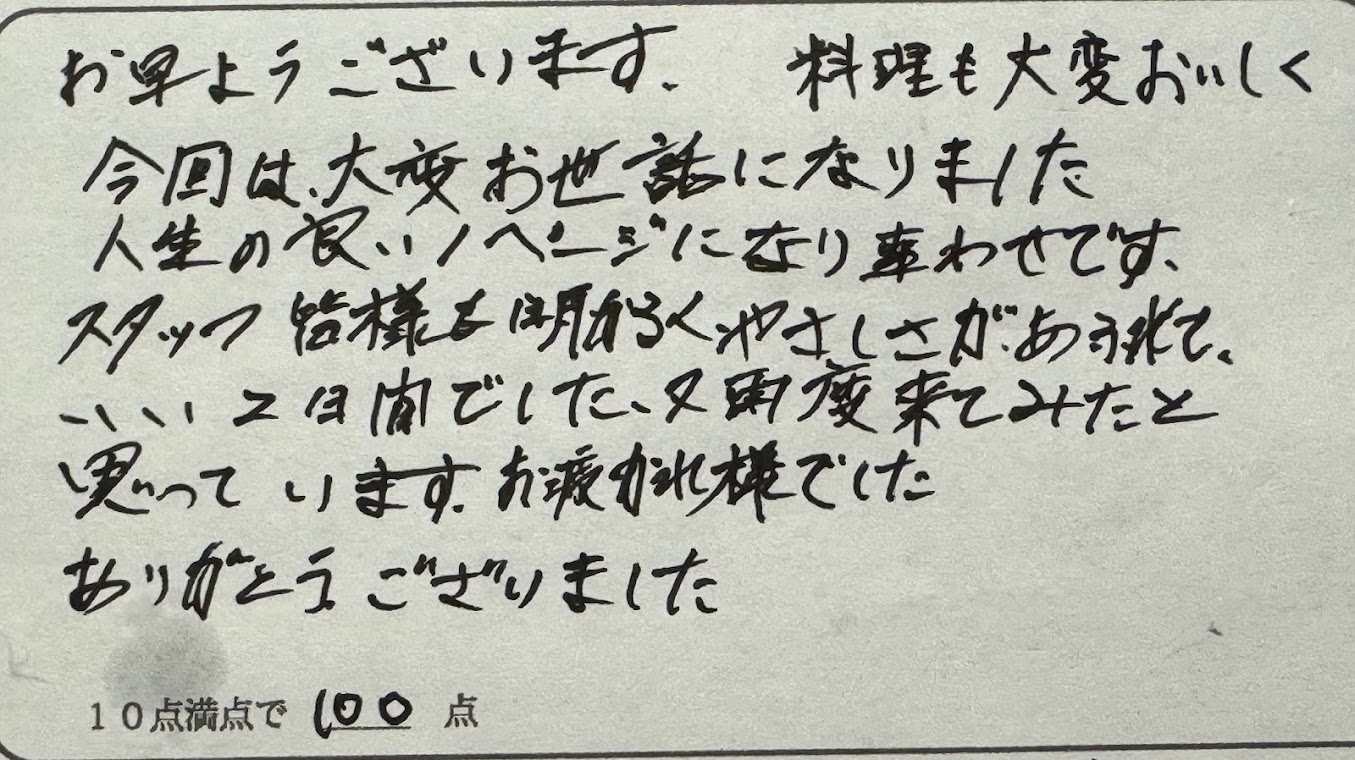 お早ようございます。 料理も大変おいしく
今回は、大変お世話になりました
人生の良い1ページになり幸わせです、
スタッフ皆様も明かるくやさしさがあふれて、
いい2日間でした、又再度来てみたと
思っています。お疲かれ様でした
ありがとう。ございました
10点満点で 100 点